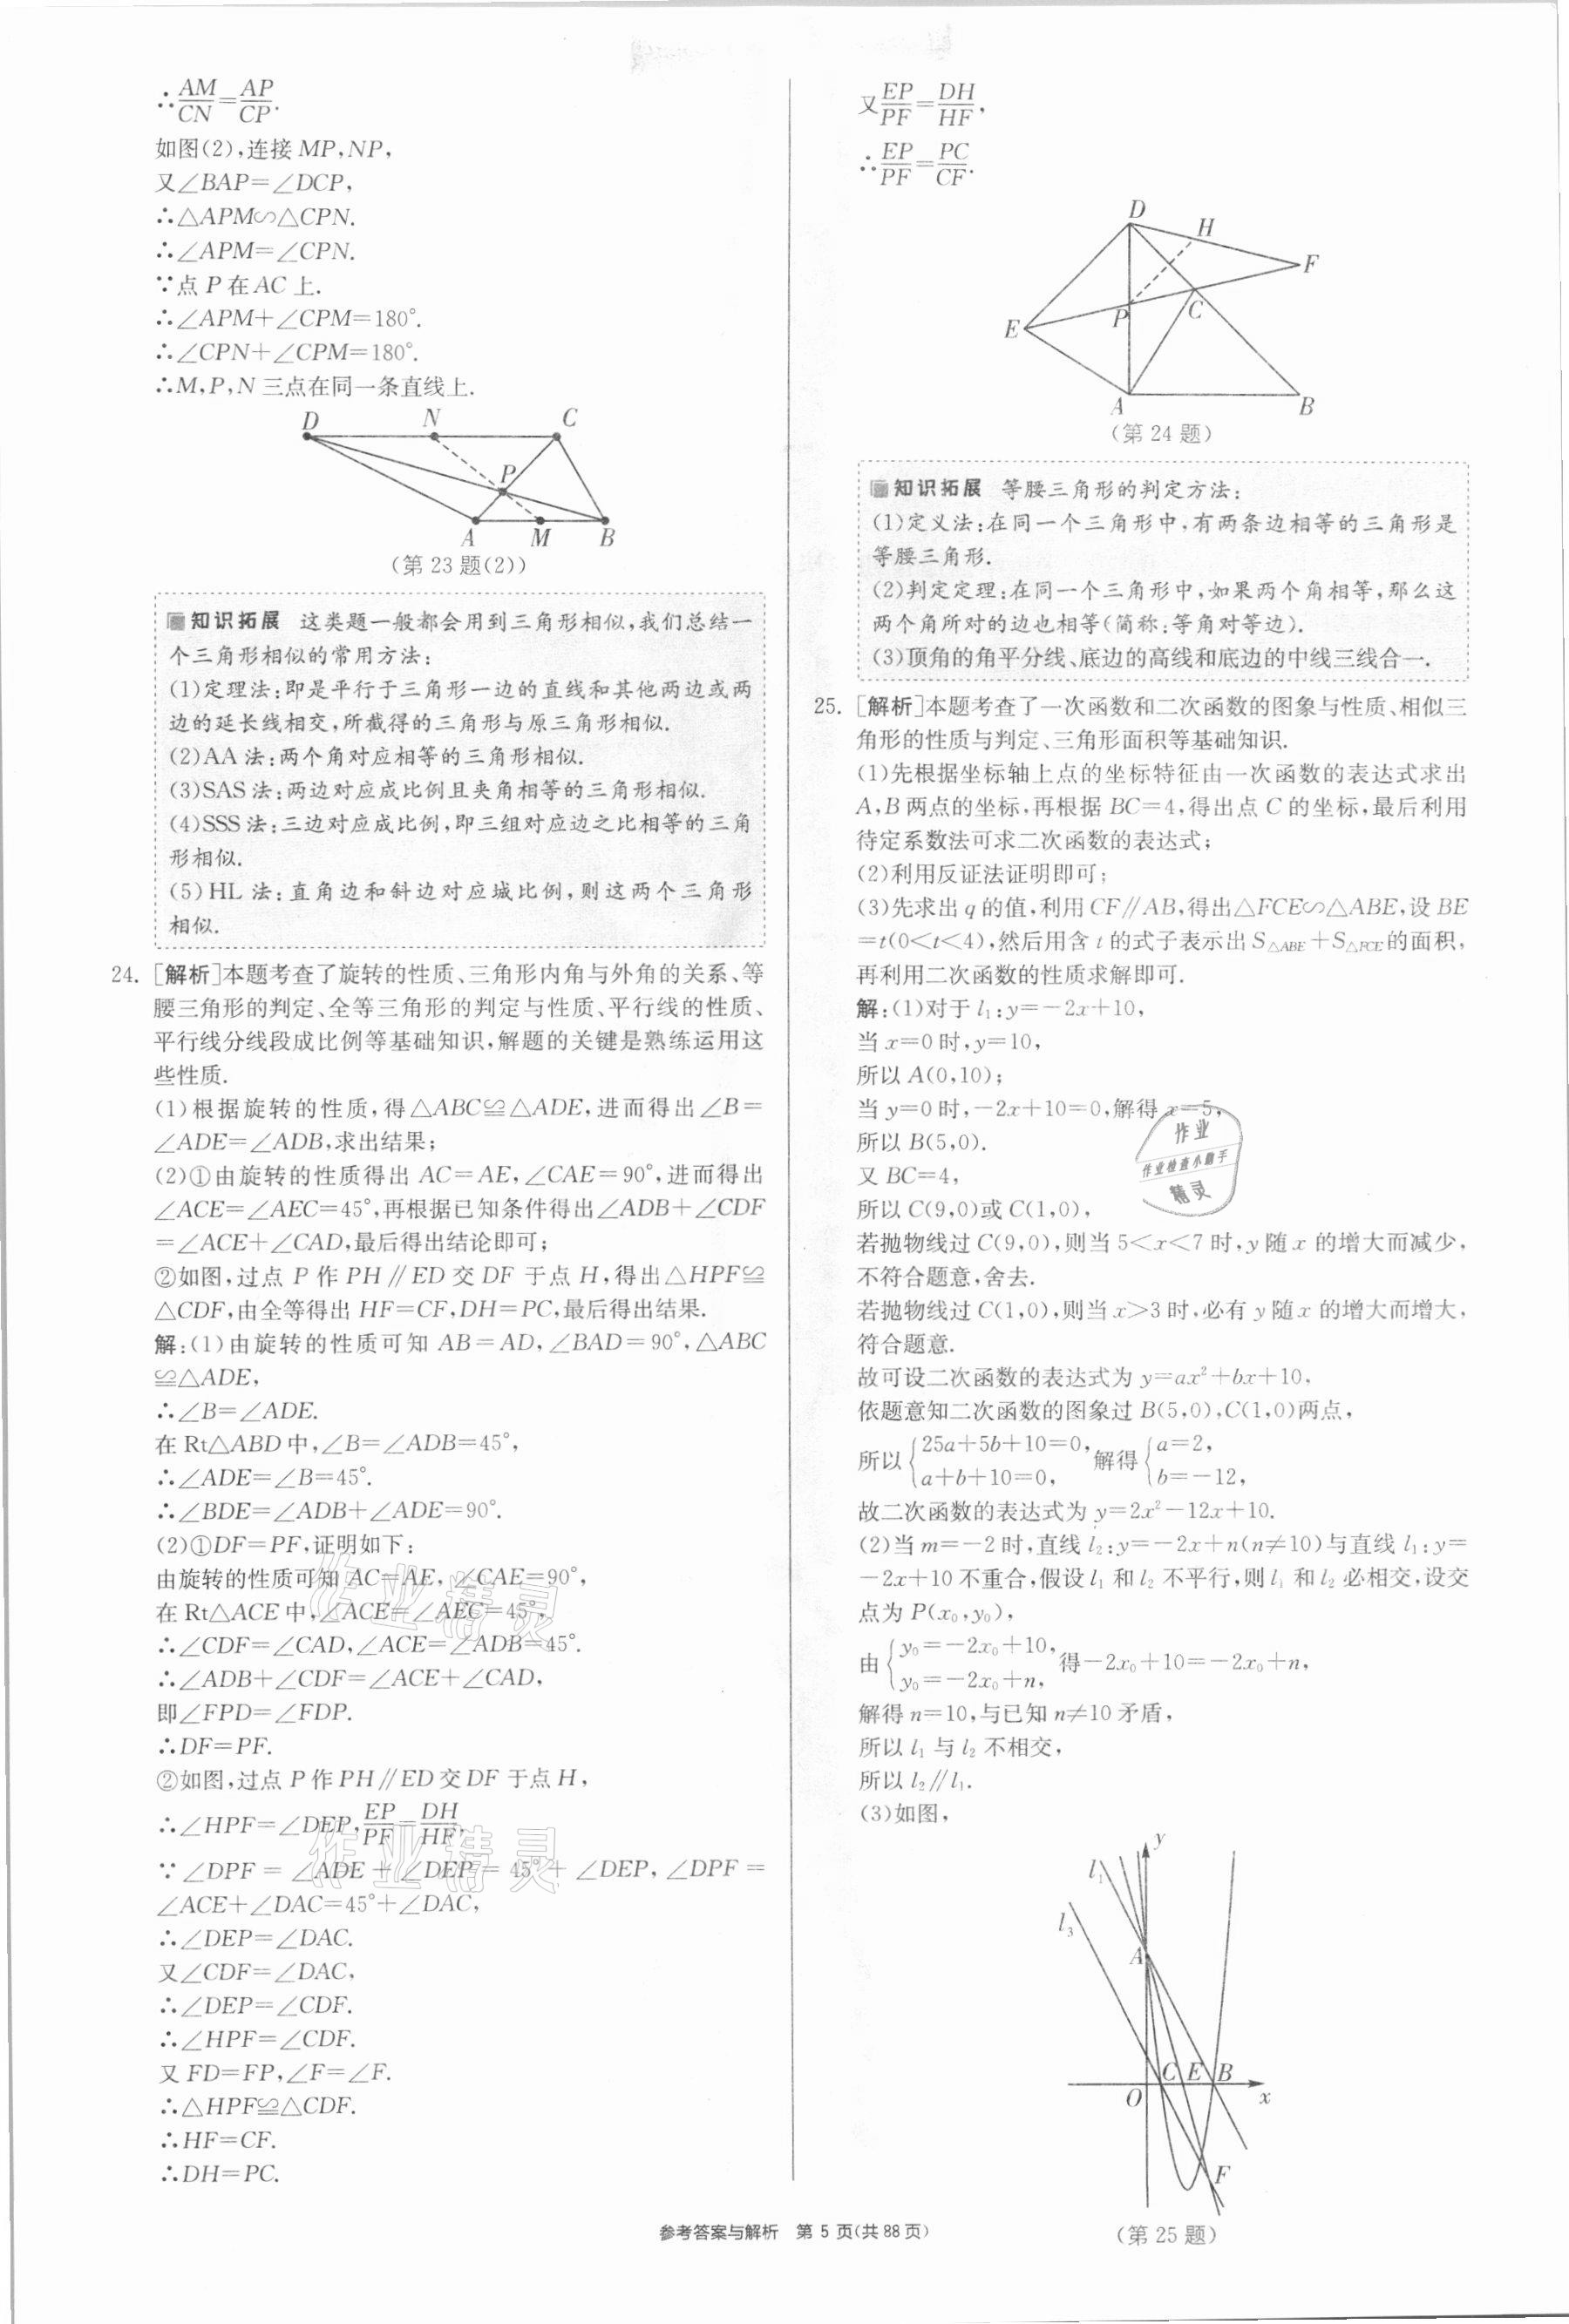 ∴AM/CN=AP/CP.
如图(2),连接 MP,NP,
又∠BAP=∠DCP,
∴△APM∽△CPN.
∴∠APM=∠CPN.
∵点 P 在 AC 上.
∴∠APM+∠CPM=180°.
∴∠CPN+∠CPM=180°.
∴M,P,N 三点在同一条直线上.
D N C
P
A M B
(第 23 题(2))
知识拓展 这类题一般都会用到三角形相似,我们总结一
个三角形相似的常用方法:
(1)定理法:即是平行于三角形一边的直线和其他两边或两
边的延长线相交,所截得的三角形与原三角形相似.
(2)AA 法:两个角对应相等的三角形相似.
(3)SAS 法:两边对应成比例且夹角相等的三角形相似.
(4)SSS 法:三边对应成比例,即三组对应边之比相等的三角
形相似.
(5)HL 法:直角边和斜边对应城比例,则这两个三角形
相似.
24. [解析]本题考查了旋转的性质、三角形内角与外角的关系、等
腰三角形的判定、全等三角形的判定与性质、平行线的性质、
平行线分线段成比例等基础知识,解题的关键是熟练运用这
些性质.
(1)根据旋转的性质,得△ABC≌△ADE,进而得出∠B=
∠ADE=∠ADB,求出结果;
(2)①由旋转的性质得出 AC=AE,∠CAE=90°,进而得出
∠ACE=∠AEC=45°,再根据已知条件得出∠ADB+∠CDF
=∠ACE+∠CAD,最后得出结论即可;
②如图,过点 P 作 PH∥ED 交 DF 于点 H,得出△HPF≌
△CDF,由全等得出 HF=CF,DH=PC,最后得出结果.
解:(1)由旋转的性质可知 AB=AD,∠BAD=90°,△ABC
≌△ADE,
∴∠B=∠ADE.
在 Rt△ABD 中,∠B=∠ADB=45°,
∴∠ADE=∠B=45°.
∴∠BDE=∠ADB+∠ADE=90°.
(2)①DF=PF,证明如下:
由旋转的性质可知 AC=AE,∠CAE=90°,
在 Rt△ACE 中,∠ACE=∠AEC=45°,
∴∠CDF=∠CAD,∠ACE=∠ADB=45°.
∴∠ADB+∠CDF=∠ACE+∠CAD,
即∠FPD=∠FDP.
∴DF=PF.
②如图,过点 P 作 PH∥ED 交 DF 于点 H,
∴∠HPF=∠DEP,EP/PF=DH/HF,
∵∠DPF=∠ADE+∠DEP=45°+∠DEP,∠DPF=
∠ACE+∠DAC=45°+∠DAC,
∴∠DEP=∠DAC.
又∠CDF=∠DAC,
∴∠DEP=∠CDF.
∴∠HPF=∠CDF.
又 FD=FP,∠F=∠F.
∴△HPF≌△CDF.
∴HF=CF.
∴DH=PC.
作业精灵
作业精灵
又EP/PF=DH/HF,
∴EP/PF=PC/CF.
D
H
F
P C
E
A B
(第 24 题)
知识拓展 等腰三角形的判定方法:
(1)定义法:在同一个三角形中,有两条边相等的三角形是
等腰三角形.
(2)判定定理:在同一个三角形中,如果两个角相等,那么这
两个角所对的边也相等(简称:等角对等边).
(3)顶角的角平分线、底边的高线和底边的中线三线合一.
25. [解析]本题考查了一次函数和二次函数的图象与性质、相似三
角形的性质与判定、三角形面积等基础知识.
(1)先根据坐标轴上点的坐标特征由一次函数的表达式求出
A,B 两点的坐标,再根据 BC=4,得出点 C 的坐标,最后利用
待定系数法可求二次函数的表达式;
(2)利用反证法证明即可;
(3)先求出 q 的值,利用 CF∥AB,得出△FCE∽△ABE,设 BE
=t(0<t<4),然后用含 t 的式子表示出 S△ABE+S△FCE的面积,
再利用二次函数的性质求解即可.
解:(1)对于 l₁:y=-2x+10,
当 x=0 时,y=10,
所以 A(0,10);
当 y=0 时,-2x+10=0,解得 x=5,
所以 B(5,0).
又 BC=4,
所以 C(9,0)或 C(1,0),
若抛物线过 C(9,0),则当 5<x<7 时,y 随 x 的增大而减少,
不符合题意,舍去.
若抛物线过 C(1,0),则当 x>3 时,必有 y 随 x 的增大而增大,
符合题意.
故可设二次函数的表达式为 y=ax²+bx+10,
依题意知二次函数的图象过 B(5,0),C(1,0)两点,
所以{25a+5b+10=0, a+b+10=0, 解得{a=2, b=-12,
故二次函数的表达式为 y=2x²-12x+10.
(2)当 m=-2 时,直线 l₂:y=-2x+n(n≠10)与直线 l₁:y=
-2x+10 不重合,假设 l₁ 和 l₂ 不平行,则 l₁ 和 l₂ 必相交,设交
点为 P(x₀,y₀),
由{y₀=-2x₀+10, y₀=-2x₀+n, 得-2x₀+10=-2x₀+n,
解得 n=10,与已知 n≠10 矛盾,
所以 l₁ 与 l₂ 不相交,
所以 l₂∥l₁.
(3)如图,
y
l₁
l₃
A
C E B
O x
F
(第 25 题)
作业
作业检查小助手
精灵
参考答案与解析 第 5 页(共 88 页)